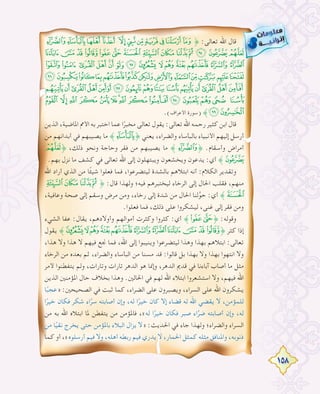 معلومات
إثرائية
قال الله تعالى: ﴿ وَمَا أَرْسَلْنَا فِي قَرْيَةٍ مِّن نَّبِيٍّ إِلَّا أَخَذْنَا أَهْلَهَا بِالْبَأْسَاءِ وَالضَّرَّاءِ
لَعَلَّهُمْ يَضَّرَّعُونَ ﴿٩٤﴾ ثُمَّ بَدَّلْنَا مَكَانَ السَّيِّئَةِ الْحَسَنَةَ حَتَّىٰ عَفَوا وَّقَالُوا قَدْ مَسَّ آبَاءَنَا
الضَّرَّاءُ وَالسَّرَّاءُ فَأَخَذْنَاهُم بَغْتَةً وَهُمْ لَا يَشْعُرُونَ ﴿٩٥﴾ وَلَوْ أَنَّ أَهْلَ الْقُرَىٰ آمَنُوا وَاتَّقَوْا
لَفَتَحْنَا عَلَيْهِم بَرَكَاتٍ مِّنَ السَّمَاءِ وَالْأَرْضِ وَلَٰكِن كَذَّبُوا فَأَخَذْنَاهُم بِمَا كَانُوا يَكْسِبُونَ ﴿٩٦﴾
أَفَأَمِنَ أَهْلُ الْقُرَىٰ أَن يَأْتِيَهُم بَأْسُنَا بَيَاتًا وَهُمْ نَائِمُونَ ﴿٩٧﴾ أَوَأَمِنَ أَهْلُ الْقُرَىٰ أَن يَأْتِيَهُم
بَأْسُنَا ضُحًى وَهُمْ يَلْعَبُونَ ﴿٩٨﴾ أَفَأَمِنُوا مَكْرَ اللَّهِ فَلَا يَأْمَنُ مَكْرَ اللَّهِ إِلَّا الْقَوْمُ
الْخَاسِرُونَ ﴿٩٩﴾ ﴾ (سورة الأعراف).
قال ابن كثير رحمه الله تعالى: يقول تعالى مخبرًا عما اختبر به الأمم الماضية، الذين
أرسل إليهم الأنبياء بالبأساء والضراء، يعني ﴿ بِالْبَأْسَاءِ ﴾ ما يصيبهم في أبدانهم من
أمراض وأسقام. ﴿ وَالضَّرَّاءِ ﴾ ما يصيبهم من فقر وحاجة ونحو ذلك، ﴿ لَعَلَّهُمْ
يَضَّرَّعُونَ ﴾ أي: يدعون ويخشعون ويبتهلون إلى الله تعالى في كشف ما نزل بهم.
وتقدير الكلام: أنه ابتلاهم بالشدة ليتضرعوا، فما فعلوا شيئًا من الذي أراد الله
منهم، فقلب الحال إلى الرخاء ليختبرهم فيه؛ ولهذا قال: ﴿ ثُمَّ بَدَّلْنَا مَكَانَ السَّيِّئَةِ
الْحَسَنَةَ ﴾ أي: حوَّلنا الحال من شدة إلى رخاء، ومن مرض وسقم إلى صحة وعافية،
ومن فقر إلى غنى، ليشكروا على ذلك، فما فعلوا.
وقوله: ﴿ حَتَّىٰ عَفَوا ﴾ أي: كثروا وكثرت أموالهم وأولادهم، يقال: عفا الشيء
إذا كثر ﴿ وَقَالُوا قَدْ مَسَّ آبَاءَنَا الضَّرَّاءُ وَالسَّرَّاءُ فَأَخَذْنَاهُم بَغْتَةً وَهُمْ لَا يَشْعُرُونَ ﴾ يقول
تعالى: ابتلاهم بهذا وهذا ليتضرعوا وينيبوا إلى الله، فما نجع فيهم لا هذا ولا هذا،
ولا انتهوا بهذا ولا بهذا بل قالوا: قد مسنا من البأساء والضراء، ثم بعده من الرخاء
مثل ما أصاب آباءنا في قديم الدهر، وإنما هو الدهر تارات وتارات، ولم يتفطنوا لأمر
الله فيهم، ولا استشعروا ابتلاء الله لهم في الحالين. وهذا بخلاف حال المؤمنين الذين
يشكرون الله على السراء، ويصبرون على الضراء، كما ثبت في الصحيحين: «عجبًا
للمؤمن، لا يقضي الله له قضاء إلا كان خيرًا له، وإن أصابته سرَّاء شكر فكان خيرًا
له، وإن أصابته ضراء صبر فكان خيرًا له»، فالمؤمن من يتفطن لما ابتلاه الله به من
السراء والضراء؛ ولهذا جاء في الحديث: «لا يزال البلاء بالمؤمن حتى يخرج نقيًا من
ذنوبه، والمنافق مثله كمثل الحمار، لا يدري فيم ربطه أهله، ولا فيم أرسلوه»، أو كما
١٥٨